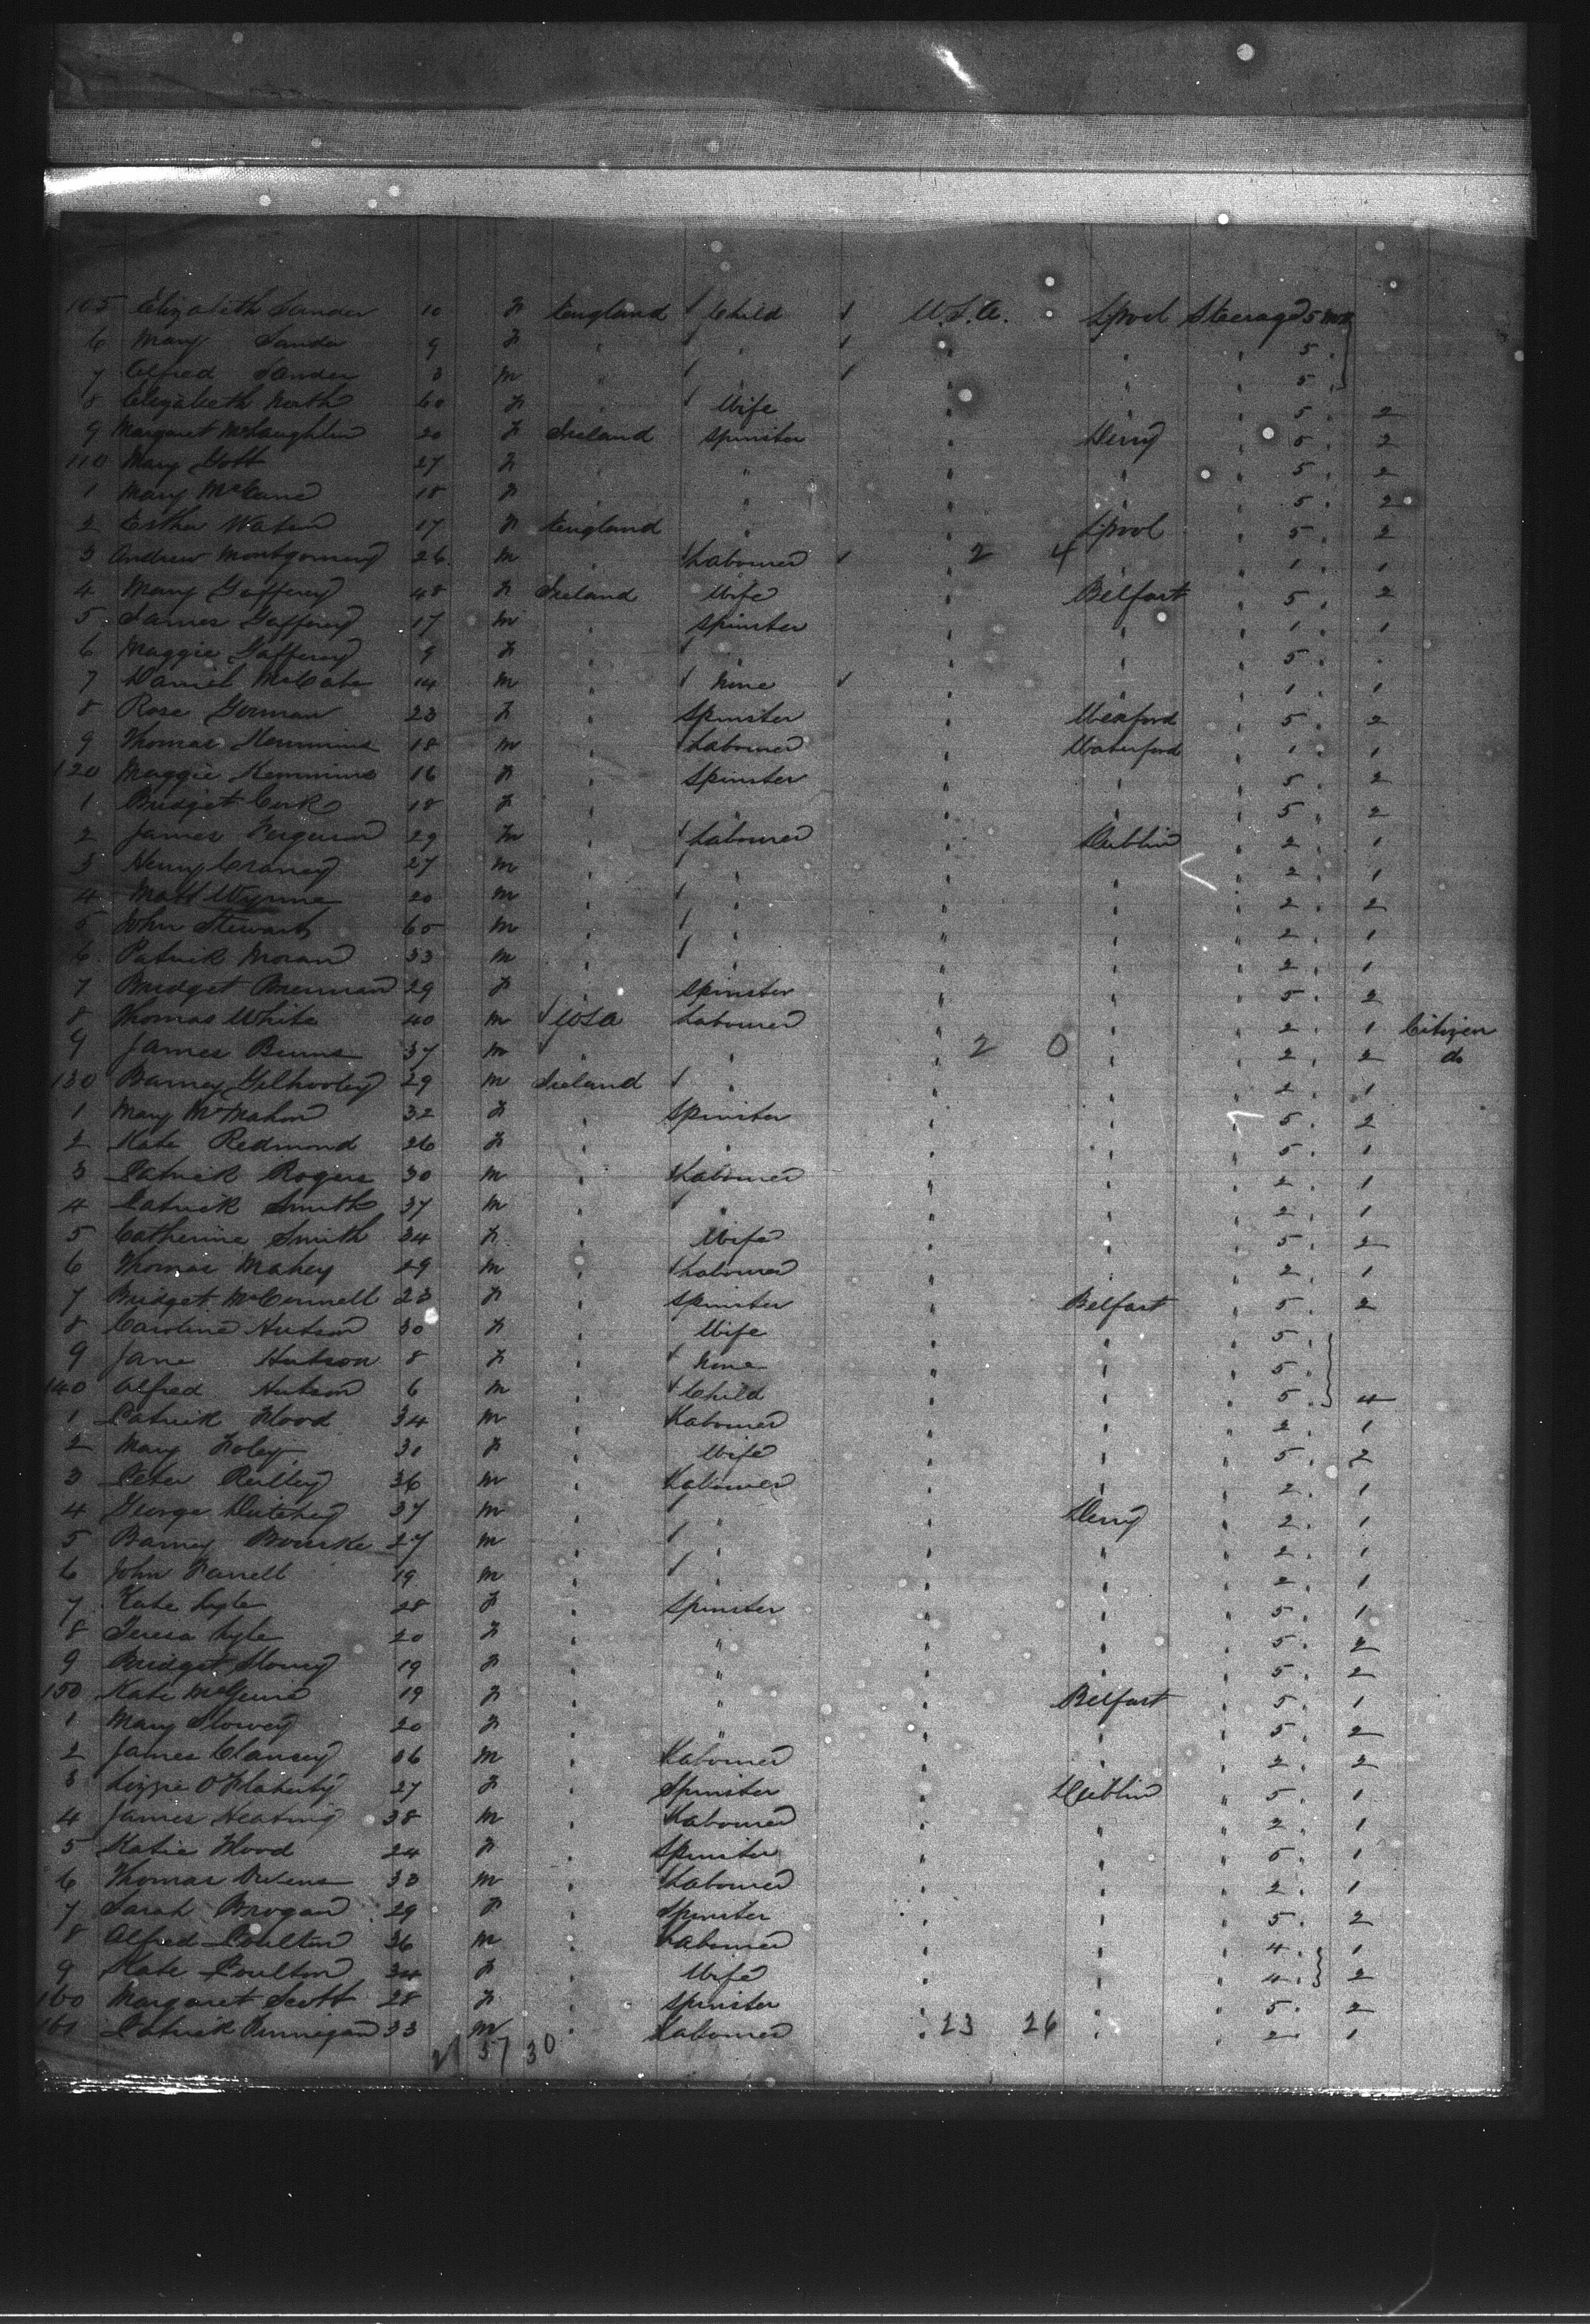 105 Elizabeth Sander 10 F England Child U.S.A. Lpool Steerage 5
6 Mary Sander 9 F " " " " " 5 "
7 Alfred Sander 3 m " " " " 5 "
8 Elizabeth North 60 F " Wife " " " 5 " 2
9 Margaret McLaughlin 20 F Ireland Spinster " Derry " 5 " 2
110 Mary 27 F " " " " " 5 " 2
1 Mary 18 F " " " " " 5 " 2
2 Esther Watson 17 F England " " Lpool " 5 " 2
3 Andrew Montgomery 26 m " Labourer " 2 4 " " 1 " 1
4 Mary Gaffney 48 F Ireland Wife " Belfast " 5 " 2
5 James Gaffney 17 m " Spinster " " " 1 " 1
6 Maggie Gaffney 9 F " " " " 5 "
7 Daniel McCabe 14 m " None " " " 1 " 1
8 Rose Gorman 23 F " Spinster " Wexford " 5 " 2
9 Thomas 18 m " Labourer " Waterford " 1 " 1
120 Maggie 16 F " Spinster " " " 5 " 2
1 Bridget Cork 18 F " " " " " 5 " 2
2 James Ferguson 29 m " Labourer " Dublin " 2 " 1
3 Henry 27 m " " " " " 2 " 1
4 Matt Wynne 20 m " " " " " 2 " 2
5 John Stewart 65 m " " " " " 2 " 1
6 Patrick Moran 33 m " " " " " 2 " 1
7 Bridget Brennan 29 F " Spinster " " " 5 " 2
8 Thomas White 40 m USA Labourer " " " 2 " 1 Citizen
9 James Burns 37 m " " " 2 0 " " 2 " 2 do
130 Barney Gilhooley 29 m Ireland " " " " 2 " 1
1 Mary McMahon 32 F " Spinster " " 5 " 2
2 Kate Redmond 26 F " " " " " 5 " 1
3 Patrick Rogers 30 m " Labourer " " " 2 " 1
4 Patrick Smith 37 m " " " " " 2 " 1
5 Catherine Smith 34 F " Wife " " " 5 " 2
6 Thomas Mahey 29 m " Labourer " " " 2 " 1
7 Bridget McConnell 23 F " Spinster " Belfast " 5 " 2
8 Caroline Hutson 30 F " Wife " " " 5 "
9 Jane Hutson 8 F " None " " " 5 "
140 Alfred Hutson 6 m " Child " " " 5 " 4
1 Patrick Flood 34 m " Labourer " " " 2 " 1
2 Mary Foley 31 F " Wife " " " 5 " 2
3 Peter Reilley 36 m " Labourer " " " 2 " 1
4 George 37 m " " " Derry " 2 " 1
5 Barney Bourke 27 m " " " " " 2 " 1
6 John Farrell 19 m " " " " " 2 " 1
7 Kate Lyle 28 F " Spinster " " " 5 " 1
8 Teresa Lyle 20 F " " " " " 5 " 2
9 Bridget 19 F " " " " " 5 " 2
150 Kate 19 F " " " Belfast " 5 " 1
1 Mary Slowey 20 F " " " " " 5 " 2
2 James Clancey 36 m " Labourer " " " 2 " 2
3 Lizzie O'Flaherty 27 F " Spinster " Dublin " 5 " 1
4 James Keating 38 m " Labourer " " " 2 " 1
5 Katie Flood 24 F " Spinster " " " 5 " 1
6 Thomas Owens 33 m " Labourer " " " 2 " 1
7 Sarah Brogan 29 F " Spinster " " " 5 " 2
8 Alfred Poulton 36 m " Labourer " " " 4 " 1
9 Kate Poulton 34 F " Wife " " " 4 " 2
160 Margaret Scott 28 F " Spinster " " " 5 " 2
161 Patrick Finnegan 33 m " Labourer " 23 26 " " 2 " 1
30